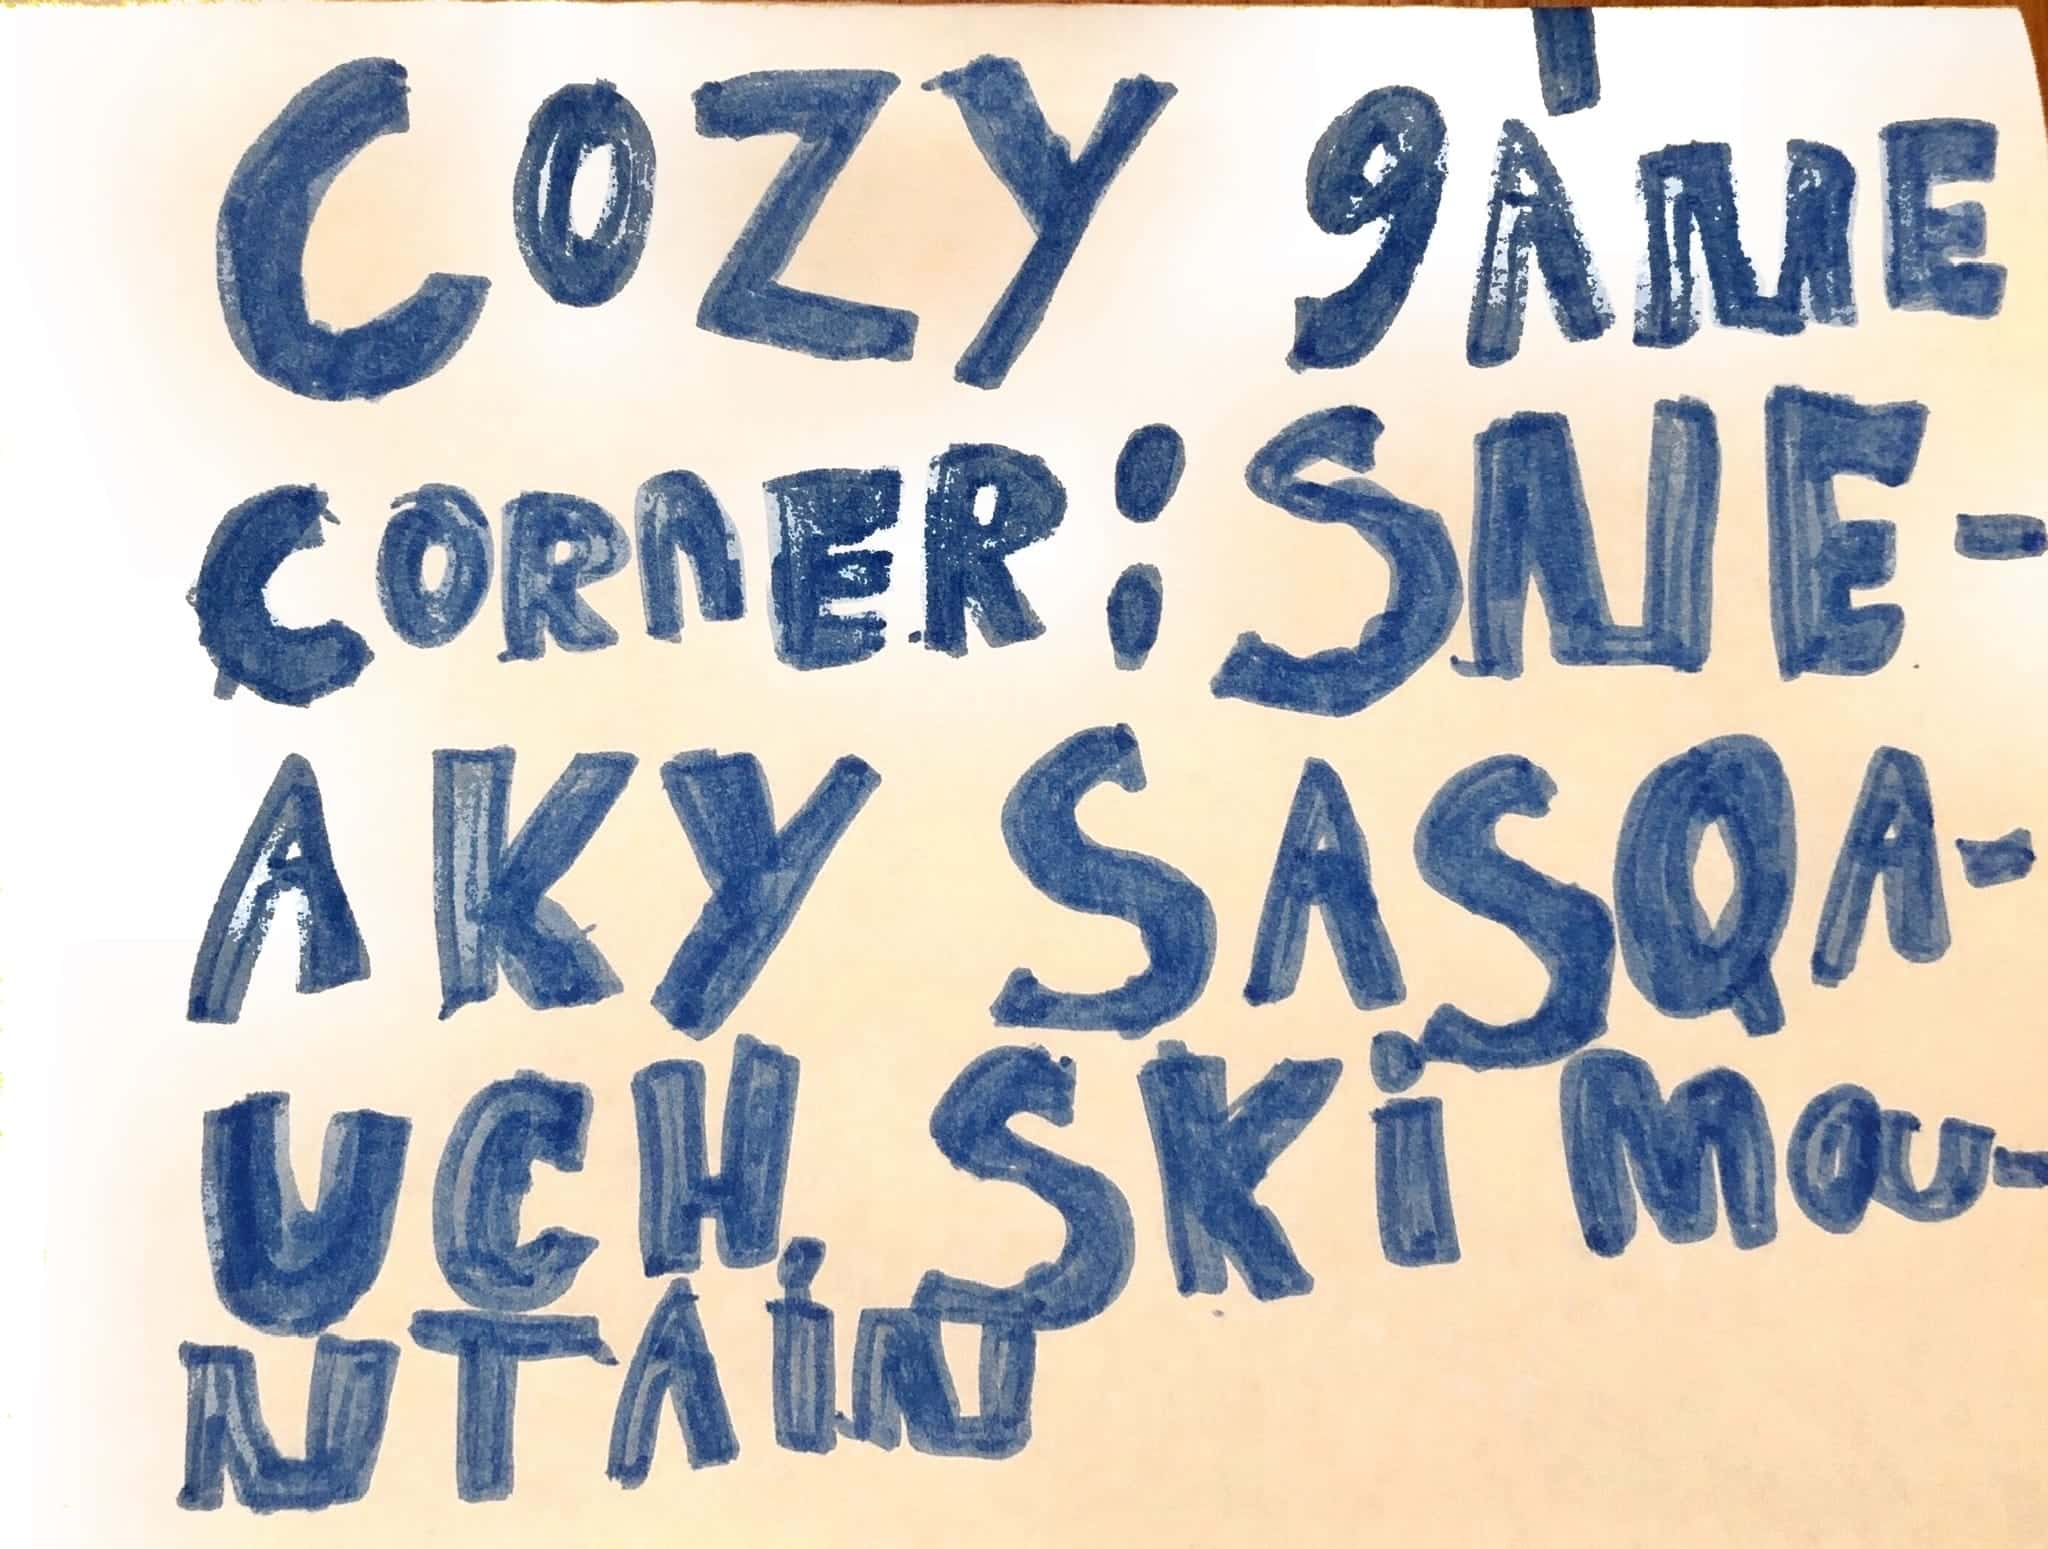 COZY gAME
CORnER: SNE-
AKY SASQA-
UCH SKi MOU-
NTAiN